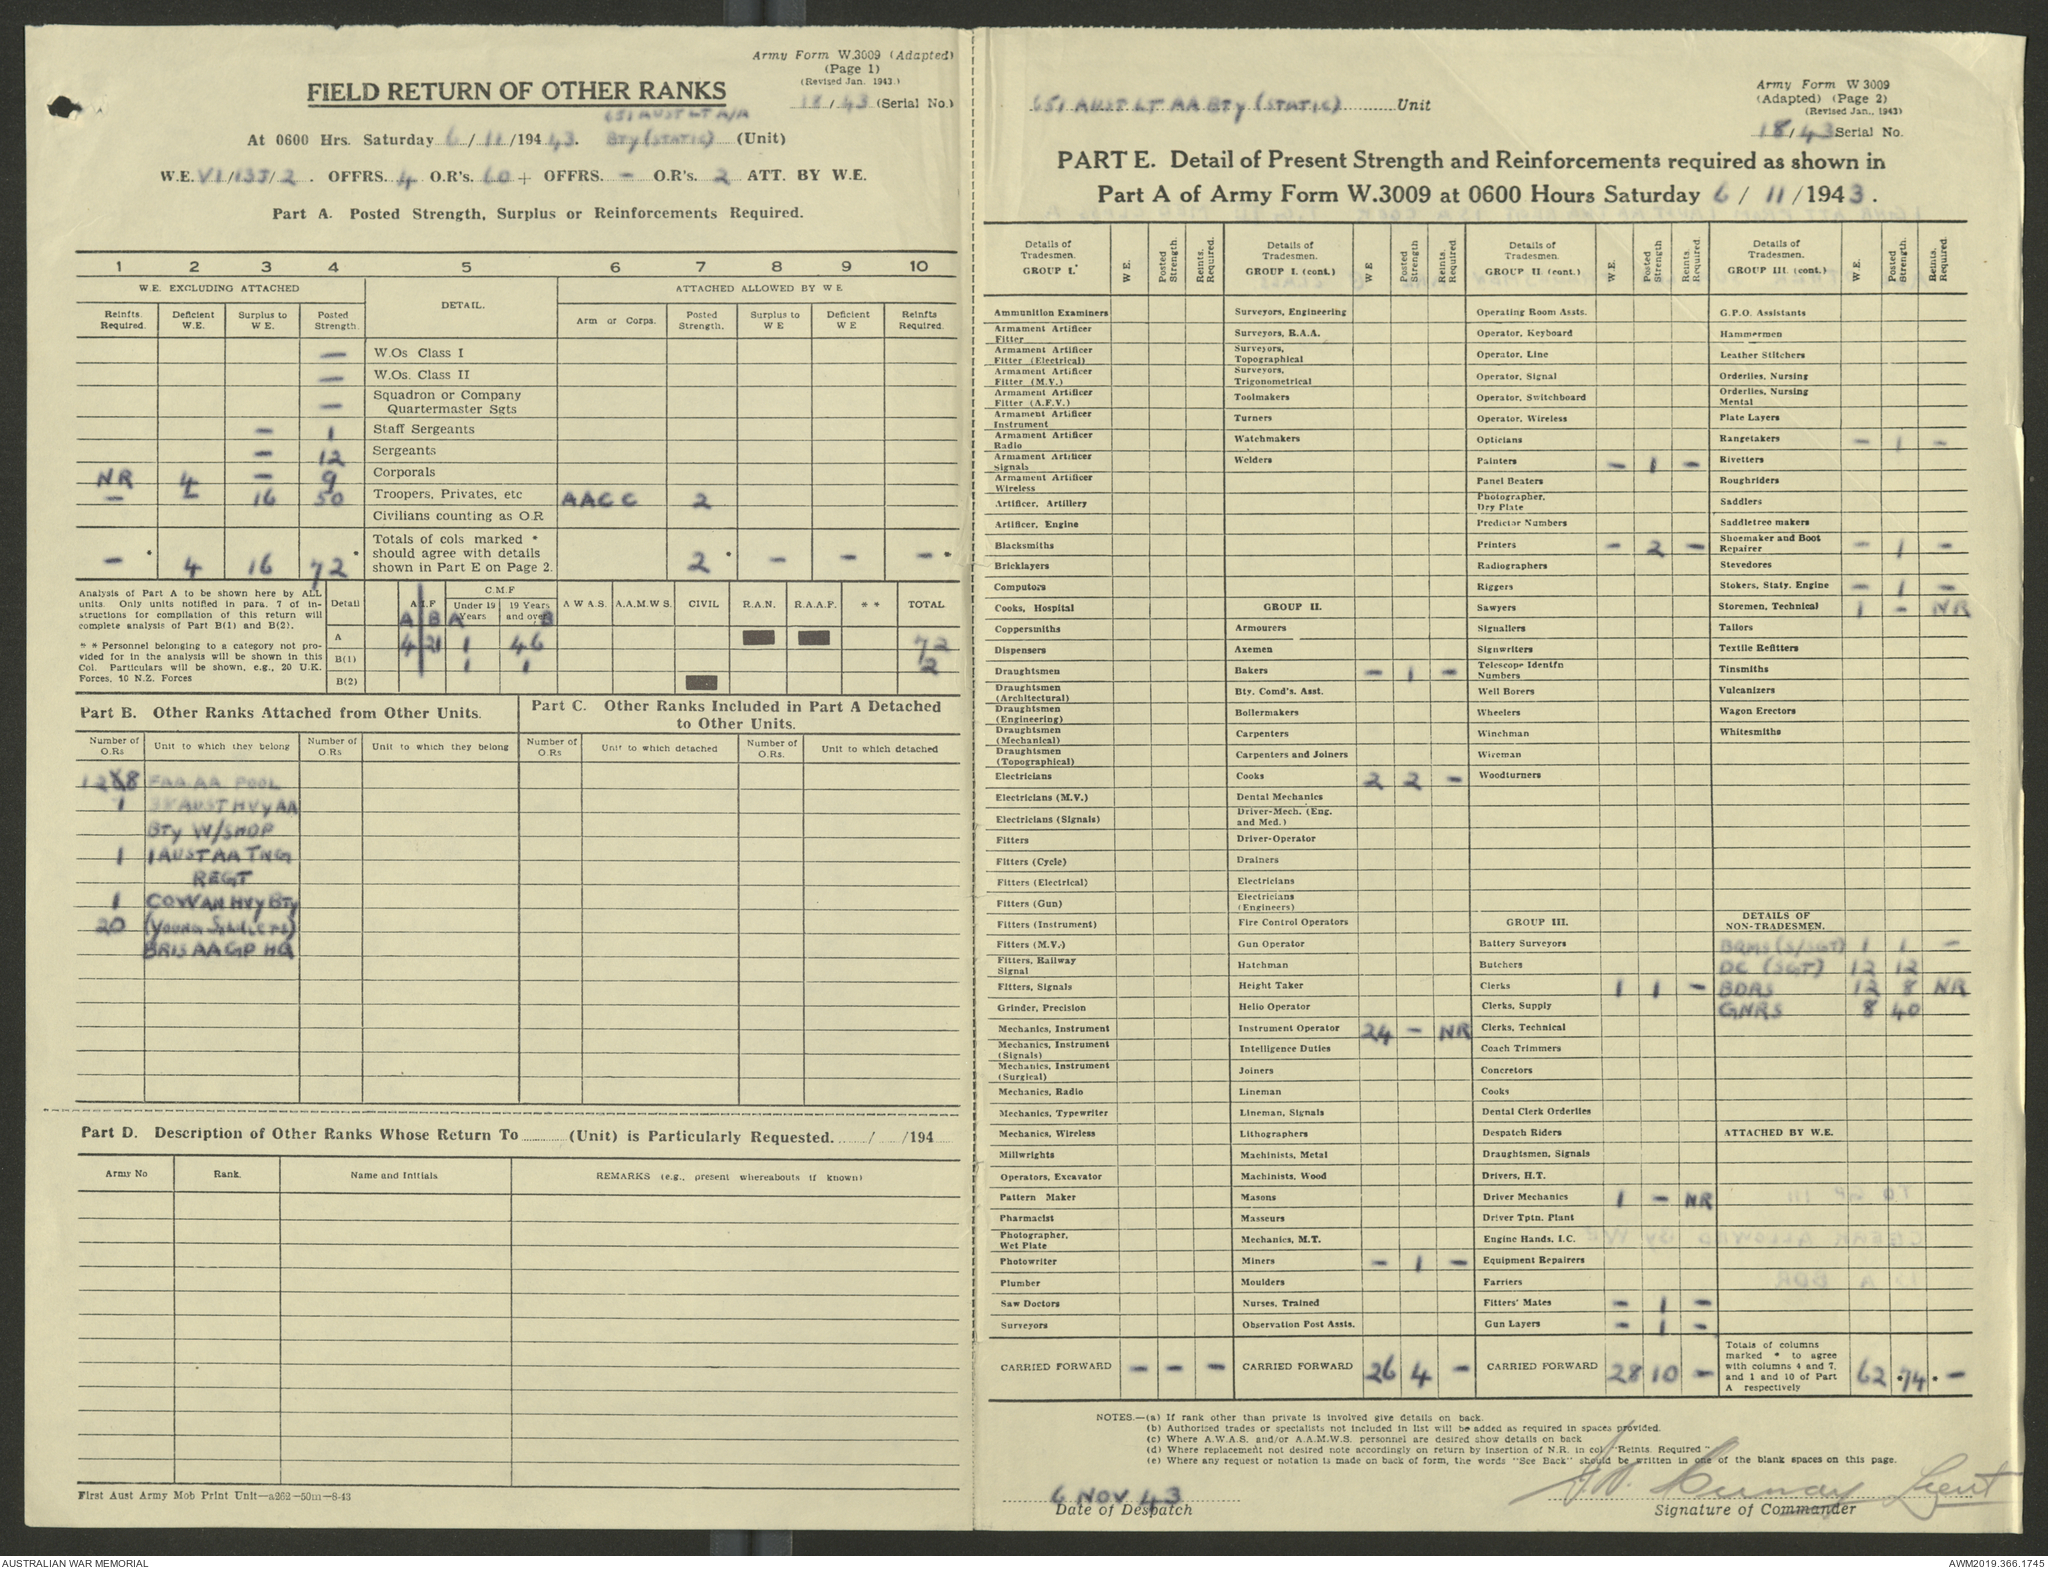 Army Form W.3009 (Adapted)
(Page 1)
(Revised Jan. 1943.)
FIELD RETURN OF OTHER RANKS
18/43 (Serial No.)
651 AUST LT A/A
At 0600 Hrs. Saturday 6/11/1943. Bty (STATIC) (Unit)
W.E. VI/135/2. OFFRS. 4 O.R's. 60 + OFFRS. – O.R's. 2 ATT. BY W.E.
Part A. Posted Strength, Surplus or Reinforcements Required.
1 2 3 4 5 6 7 8 9 10
W.E. EXCLUDING ATTACHED DETAIL. ATTACHED ALLOWED BY W E
Reinfts. Required. Deficient W.E. Surplus to W E. Posted Strength. Arm or Corps. Posted Strength. Surplus to W E Deficient W E Reinfts Required.
– W.Os Class I
– W.Os. Class II
– Squadron or Company Quartermaster Sgts
– 1 Staff Sergeants
– 12 Sergeants
NR 4 – 9 Corporals
– – 16 50 Troopers, Privates, etc AACC 2
Civilians counting as O.R
– * 4 16 72 * Totals of cols marked * should agree with details shown in Part E on Page 2. 2 * – – – *
Analysis of Part A to be shown here by ALL
units. Only units notified in para. 7 of in-
structions for compilation of this return will
complete analysis of Part B(1) and B(2).
* * Personnel belonging to a category not pro-
vided for in the analysis will be shown in this
Col. Particulars will be shown, e.g., 20 U.K.
Forces, 10 N.Z. Forces
Detail A.I.F C.M.F Under 19 Years 19 Years and over A W A S. A.A.M.W S. CIVIL R.A.N. R.A.A.F. * * TOTAL
A B A B
A 4 21 1 46 72
B(1) 1 1 2
B(2)
Part B. Other Ranks Attached from Other Units.
Number of O.Rs Unit to which they belong Number of O.Rs Unit to which they belong
128 FAA AA POOL
1 AUST HVY AA
BTY W/SHOP
1 1 AUST AA TNG
REGT
1 COWAN HVY BTY
20 (YOUNG Soldiers)
BRIS AA GP HQ
Part C. Other Ranks Included in Part A Detached
to Other Units.
Number of O.Rs Unit to which detached Number of O.Rs. Unit to which detached
Part D. Description of Other Ranks Whose Return To ........ (Unit) is Particularly Requested. ...../...../194
Army No Rank. Name and Initials REMARKS (e.g., present whereabouts if known)
First Aust Army Mob Print Unit—a262—50m—8-43
651 AUST LT AA BTY (STATIC) Unit
Army Form W 3009
(Adapted) (Page 2)
(Revised Jan., 1943)
18/43 Serial No.
PART E. Detail of Present Strength and Reinforcements required as shown in
Part A of Army Form W.3009 at 0600 Hours Saturday 6/11/1943.
Details of Tradesmen. GROUP I. W E. Posted Strength. Reints. Required.
Ammunition Examiners
Armament Artificer Fitter
Armament Artificer Fitter (Electrical)
Armament Artificer Fitter (M.V.)
Armament Artificer Fitter (A.F.V.)
Armament Artificer Instrument
Armament Artificer Radio
Armament Artificer Signals
Armament Artificer Wireless
Artificer, Artillery
Artificer, Engine
Blacksmiths
Bricklayers
Computors
Cooks, Hospital
Coppersmiths
Dispensers
Draughtsmen
Draughtsmen (Architectural)
Draughtsmen (Engineering)
Draughtsmen (Mechanical)
Draughtsmen (Topographical)
Electricians
Electricians (M.V.)
Electricians (Signals)
Fitters
Fitters (Cycle)
Fitters (Electrical)
Fitters (Gun)
Fitters (Instrument)
Fitters (M.V.)
Fitters, Railway Signal
Fitters, Signals
Grinder, Precision
Mechanics, Instrument
Mechanics, Instrument (Signals)
Mechanics, Instrument (Surgical)
Mechanics, Radio
Mechanics, Typewriter
Mechanics, Wireless
Millwrights
Operators, Excavator
Pattern Maker
Pharmacist
Photographer, Wet Plate
Photowriter
Plumber
Saw Doctors
Surveyors
CARRIED FORWARD – – –
Details of Tradesmen. GROUP I. (cont.) W E Posted Strength. Reints. Required.
Surveyors, Engineering
Surveyors, R.A.A.
Surveyors, Topographical
Surveyors, Trigonometrical
Toolmakers
Turners
Watchmakers
Welders
GROUP II.
Armourers
Axemen
Bakers – 1 –
Bty. Comd's. Asst.
Boilermakers
Carpenters
Carpenters and Joiners
Cooks 2 2 –
Dental Mechanics
Driver-Mech. (Eng. and Med.)
Driver-Operator
Drainers
Electricians
Electricians (Engineers)
Fire Control Operators
Gun Operator
Hatchman
Height Taker
Helio Operator
Instrument Operator 24 – NR
Intelligence Duties
Joiners
Lineman
Lineman, Signals
Lithographers
Machinists, Metal
Machinists, Wood
Masons
Masseurs
Mechanics, M.T.
Miners – 1 –
Moulders
Nurses, Trained
Observation Post Assts.
CARRIED FORWARD 26 4 –
Details of Tradesmen. GROUP II (cont.) W.E. Posted Strength Reints. Required.
Operating Room Assts.
Operator, Keyboard
Operator, Line
Operator, Signal
Operator, Switchboard
Operator, Wireless
Opticians
Painters – 1 –
Panel Beaters
Photographer, Dry Plate
Predictor Numbers
Printers – 2 –
Radiographers
Riggers
Sawyers
Signallers
Signwriters
Telescope Identfn Numbers
Well Borers
Wheelers
Winchman
Wireman
Woodturners
GROUP III.
Battery Surveyors
Butchers
Clerks 1 1 –
Clerks, Supply
Clerks, Technical
Coach Trimmers
Concretors
Cooks
Dental Clerk Orderlies
Despatch Riders
Draughtsmen, Signals
Drivers, H.T.
Driver Mechanics 1 – NR
Driver Tptn. Plant
Engine Hands, I.C.
Equipment Repairers
Farriers
Fitters' Mates – 1 –
Gun Layers – 1 –
CARRIED FORWARD 28 10 –
Details of Tradesmen. GROUP III. (cont.) W.E. Posted Strength. Reints. Required.
G.P.O. Assistants
Hammermen
Leather Stitchers
Orderlies, Nursing
Orderlies, Nursing Mental
Plate Layers
Rangetakers – 1 –
Rivetters
Roughriders
Saddlers
Saddletree makers
Shoemaker and Boot Repairer – 1 –
Stevedores
Stokers, Staty. Engine – 1 –
Storemen, Technical 1 – NR
Tailors
Textile Refitters
Tinsmiths
Vulcanizers
Wagon Erectors
Whitesmiths
DETAILS OF NON-TRADESMEN.
BQMS (S/SGT) 1 1 –
DC (SGT) 12 12
BDRS 12 8 NR
GNRS 8 40
ATTACHED BY W.E.
Totals of columns marked * to agree with columns 4 and 7, and 1 and 10 of Part A respectively 62 *74 * –
NOTES.—(a) If rank other than private is involved give details on back.
(b) Authorised trades or specialists not included in list will be added as required in spaces provided.
(c) Where A.W.A.S. and/or A.A.M.W.S. personnel are desired show details on back
(d) Where replacement not desired note accordingly on return by insertion of N.R. in col "Reints. Required"
(e) Where any request or notation is made on back of form, the words "See Back" should be written in one of the blank spaces on this page.
6 NOV 43
Date of Despatch
Lieut
Signature of Commander
AUSTRALIAN WAR MEMORIAL
AWM2019.366.1745